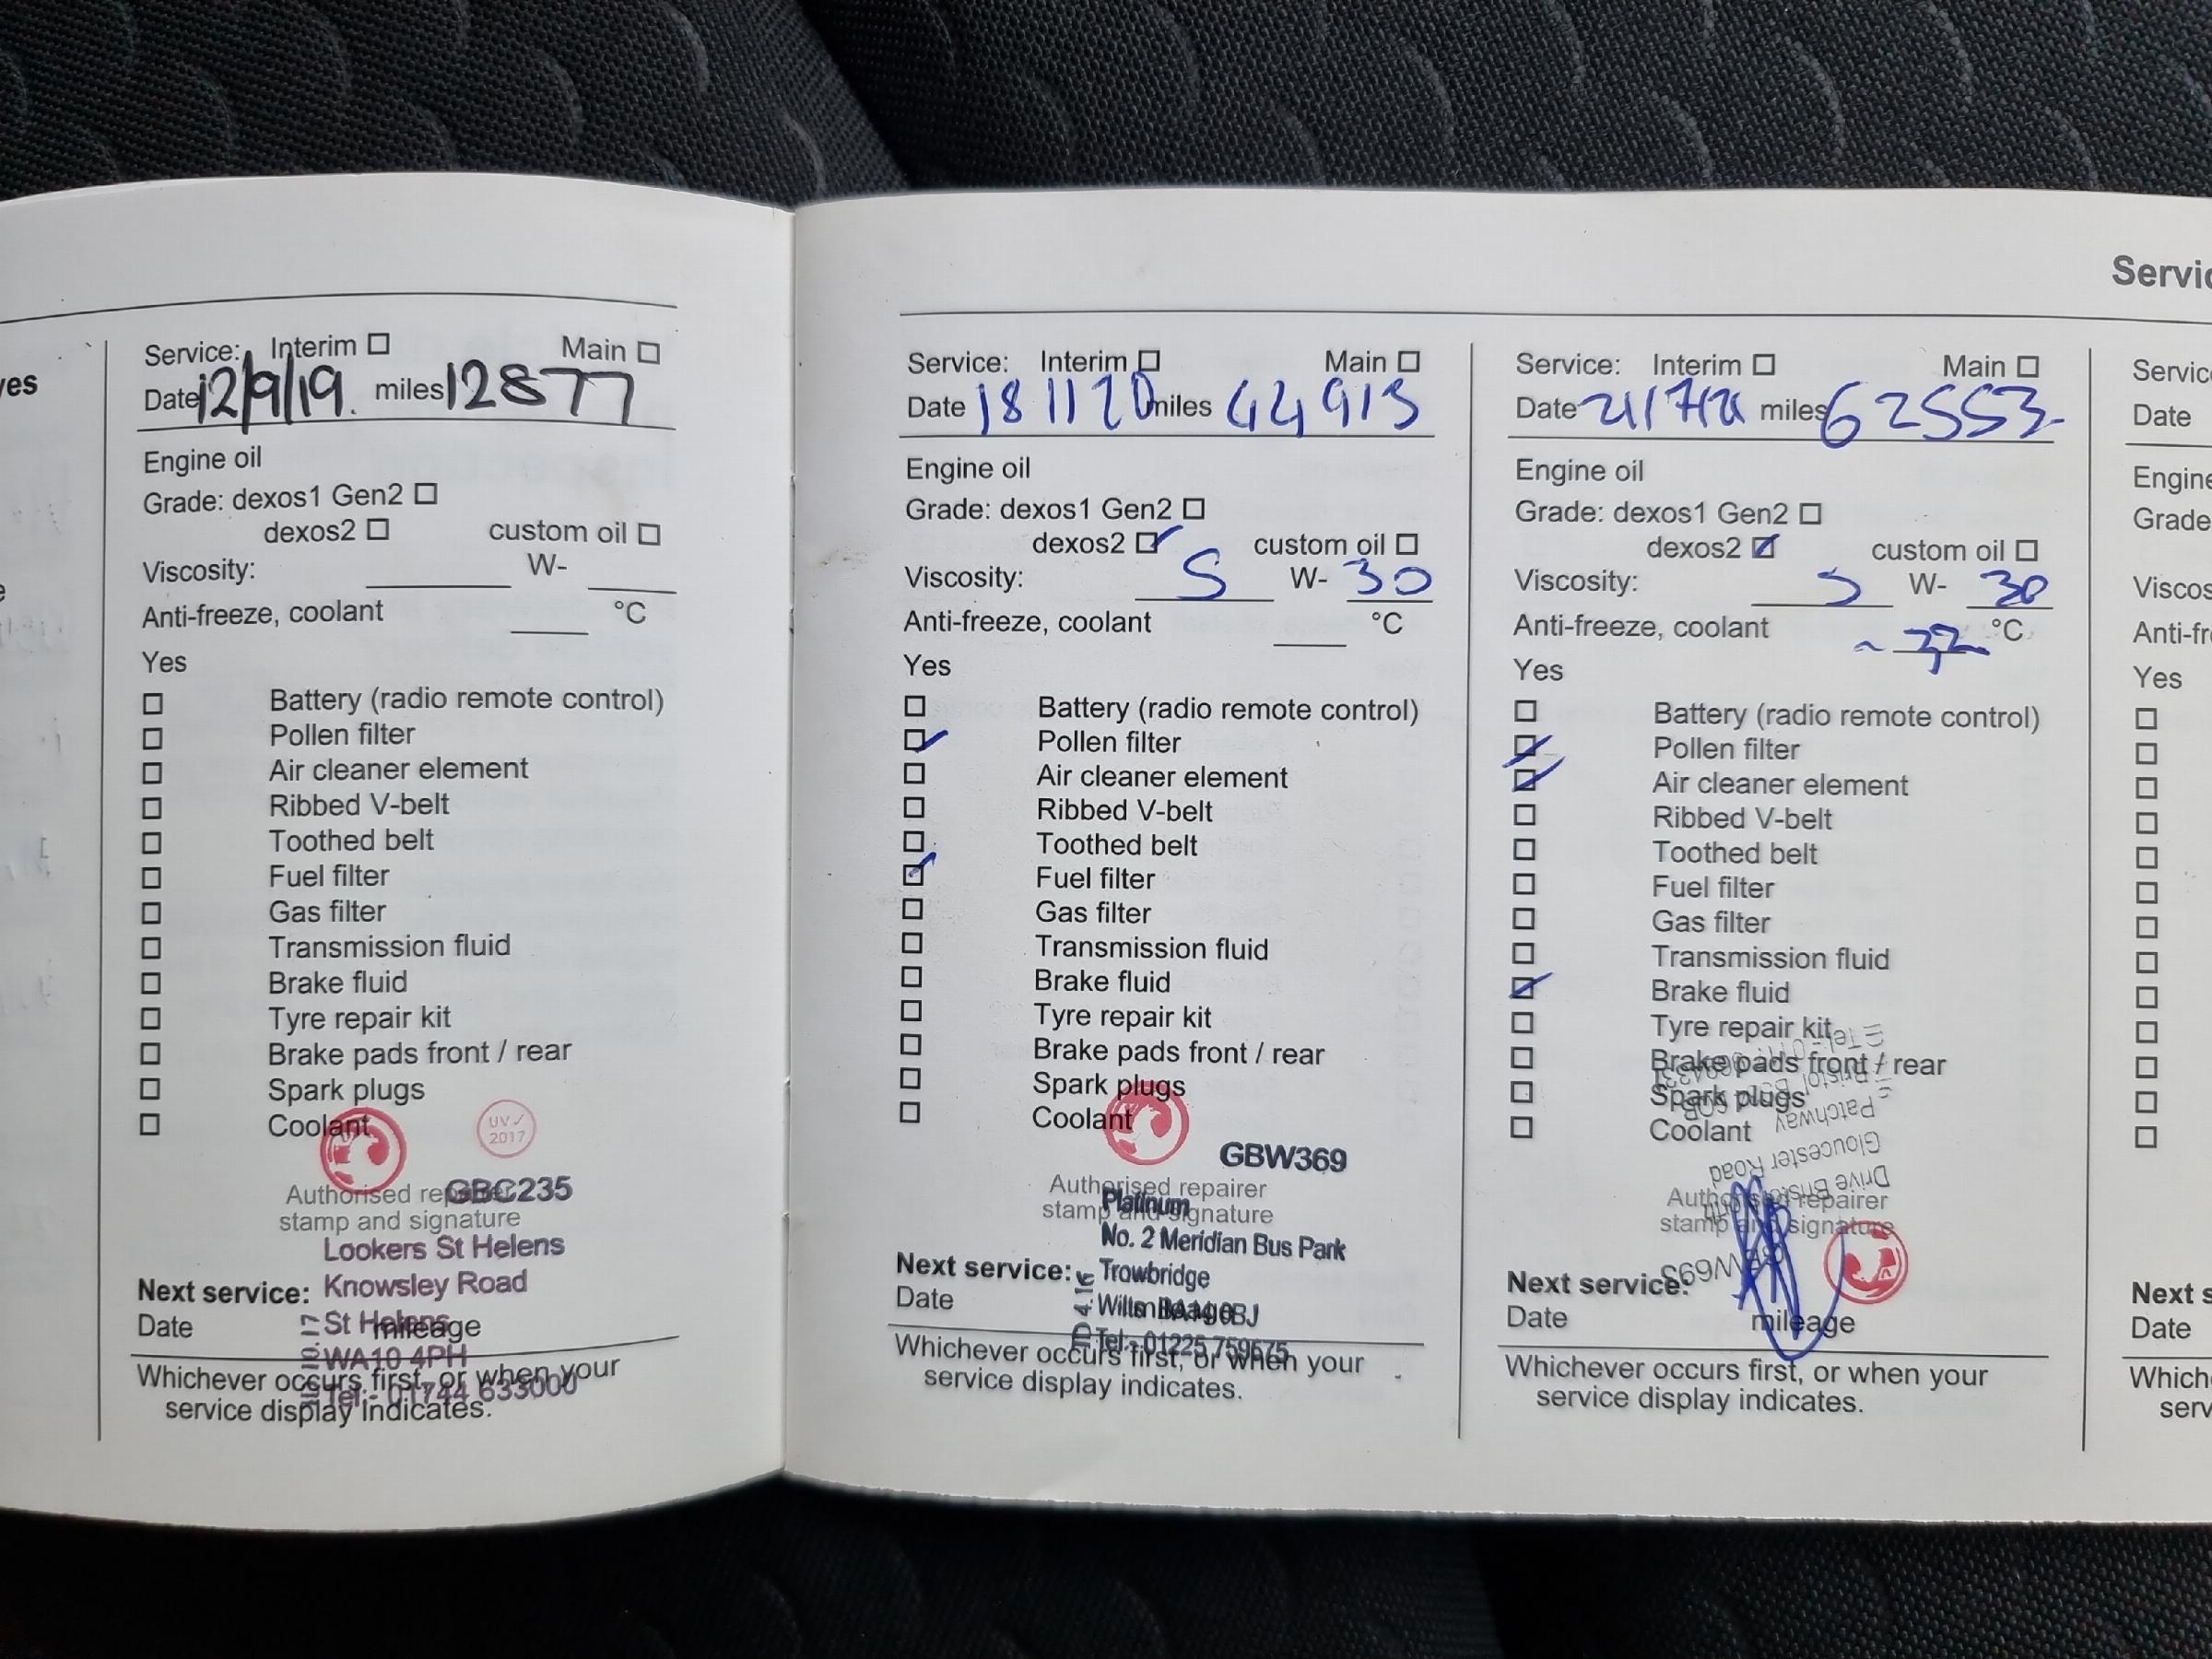 yes
Service: Interim Main
Date 12/9/19. miles 12877
Engine oil
Grade: dexos1 Gen2
dexos2 custom oil
Viscosity: W-
Anti-freeze, coolant °C
Yes
Battery (radio remote control)
Pollen filter
Air cleaner element
Ribbed V-belt
Toothed belt
Fuel filter
Gas filter
Transmission fluid
Brake fluid
Tyre repair kit
Brake pads front / rear
Spark plugs
Coolant
UV✓
2017
GBC235
Authorised repairer
stamp and signature
Lookers St Helens
Knowsley Road
St Helens
WA10 4PH
Tel:- 01744 633000
Next service:
Date mileage
Whichever occurs first, or when your
service display indicates.
Servic
Service: Interim Main
Date miles 44913
Engine oil
Grade: dexos1 Gen2
dexos2 custom oil
Viscosity: 5 W- 30
Anti-freeze, coolant °C
Yes
Battery (radio remote control)
Pollen filter
Air cleaner element
Ribbed V-belt
Toothed belt
Fuel filter
Gas filter
Transmission fluid
Brake fluid
Tyre repair kit
Brake pads front / rear
Spark plugs
Coolant
GBW369
Authorised repairer
stamp and signature
Platinum
No. 2 Meridian Bus Park
Trowbridge
Wilts BA14 0BJ
Tel:- 01225 759675
Next service:
Date mileage
Whichever occurs first, or when your
service display indicates.
Service: Interim Main
Date 21/7/21 miles 62553
Engine oil
Grade: dexos1 Gen2
dexos2 custom oil
Viscosity: 5 W- 30
Anti-freeze, coolant °C
Yes
Battery (radio remote control)
Pollen filter
Air cleaner element
Ribbed V-belt
Toothed belt
Fuel filter
Gas filter
Transmission fluid
Brake fluid
Tyre repair kit
Brake pads front / rear
Spark plugs
Coolant
Patchway
Gloucester Road
Drive
GBW693
Authorised repairer
stamp and signature
Next service:
Date mileage
Whichever occurs first, or when your
service display indicates.
Servic
Date
Engine
Grade
Viscos
Anti-fr
Yes
Next s
Date
Which
serv